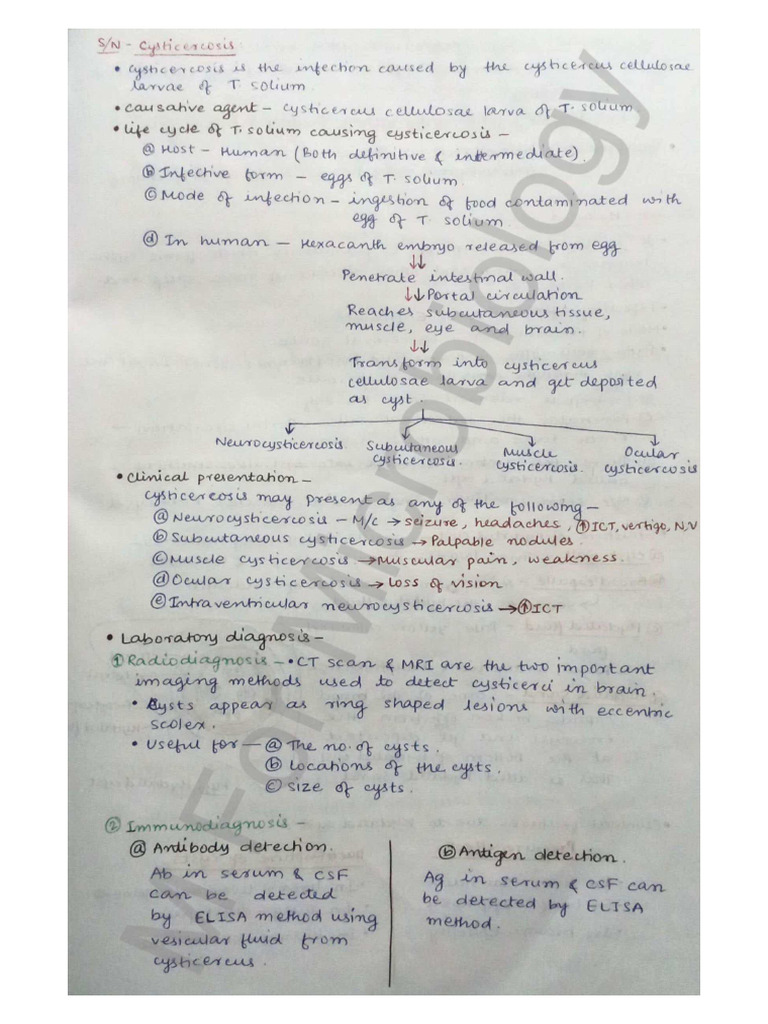 S/N - Cysticercosis
• Cysticercosis is the infection caused by the cysticercus cellulosae
larvae of T solium
• Causative agent - cysticercus cellulosae larva of T. solium
• life cycle of T. solium causing cysticercosis -
ⓐ Host - Human (Both definitive & intermediate).
ⓑ Infective form - eggs of T. solium.
ⓒ Mode of infection - ingestion of food contaminated with
egg of T. solium.
ⓓ In human - Hexacanth embryo released from egg
↓↓
Penetrate intestinal wall.
↓↓ Portal circulation
Reaches subcutaneous tissue,
muscle, eye and brain.
↓↓
Transform into cysticercus
cellulosae larva and get deposited
as cyst.
Neurocysticercosis. Subcutaneous cysticercosis. Muscle cysticercosis. Ocular cysticercosis
• Clinical presentation -
Cysticercosis may present as any of the following -
ⓐ Neurocysticercosis - M/c → seizure, headaches, ↑ICT, vertigo, N,V
ⓑ Subcutaneous cysticercosis → Palpable nodules.
ⓒ Muscle cysticercosis → Muscular pain, weakness.
ⓓ Ocular cysticercosis → Loss of vision
ⓔ Intraventricular neurocysticercosis → ↑ICT
• Laboratory diagnosis -
① Radiodiagnosis - • CT scan & MRI are the two important
imaging methods used to detect cysticerci in brain.
• Cysts appear as ring shaped lesions with eccentric
scolex.
• Useful for - ⓐ The no. of cysts.
ⓑ Locations of the cysts.
ⓒ Size of cysts.
② Immunodiagnosis -
ⓐ Antibody detection.
Ab in serum & CSF
can be detected
by ELISA method using
vesicular fluid from
cysticercus.
ⓑ Antigen detection.
Ag in serum & CSF can
be detected by ELISA
method.
For Microbiology